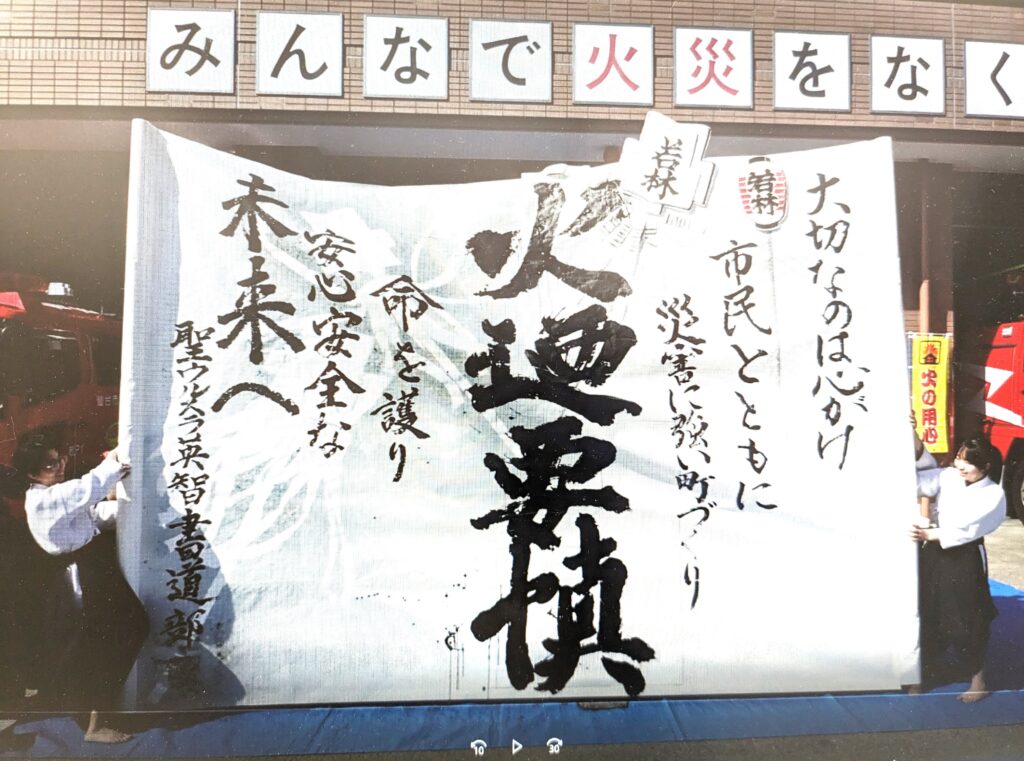 みんなで火災をなく
大切なのは心がけ
若林
市民とともに
災害に強い町づくり
若林
火迺要慎
命を護り
安心安全な
未来へ
聖ウルスラ英智書道部
火の用心
10
30